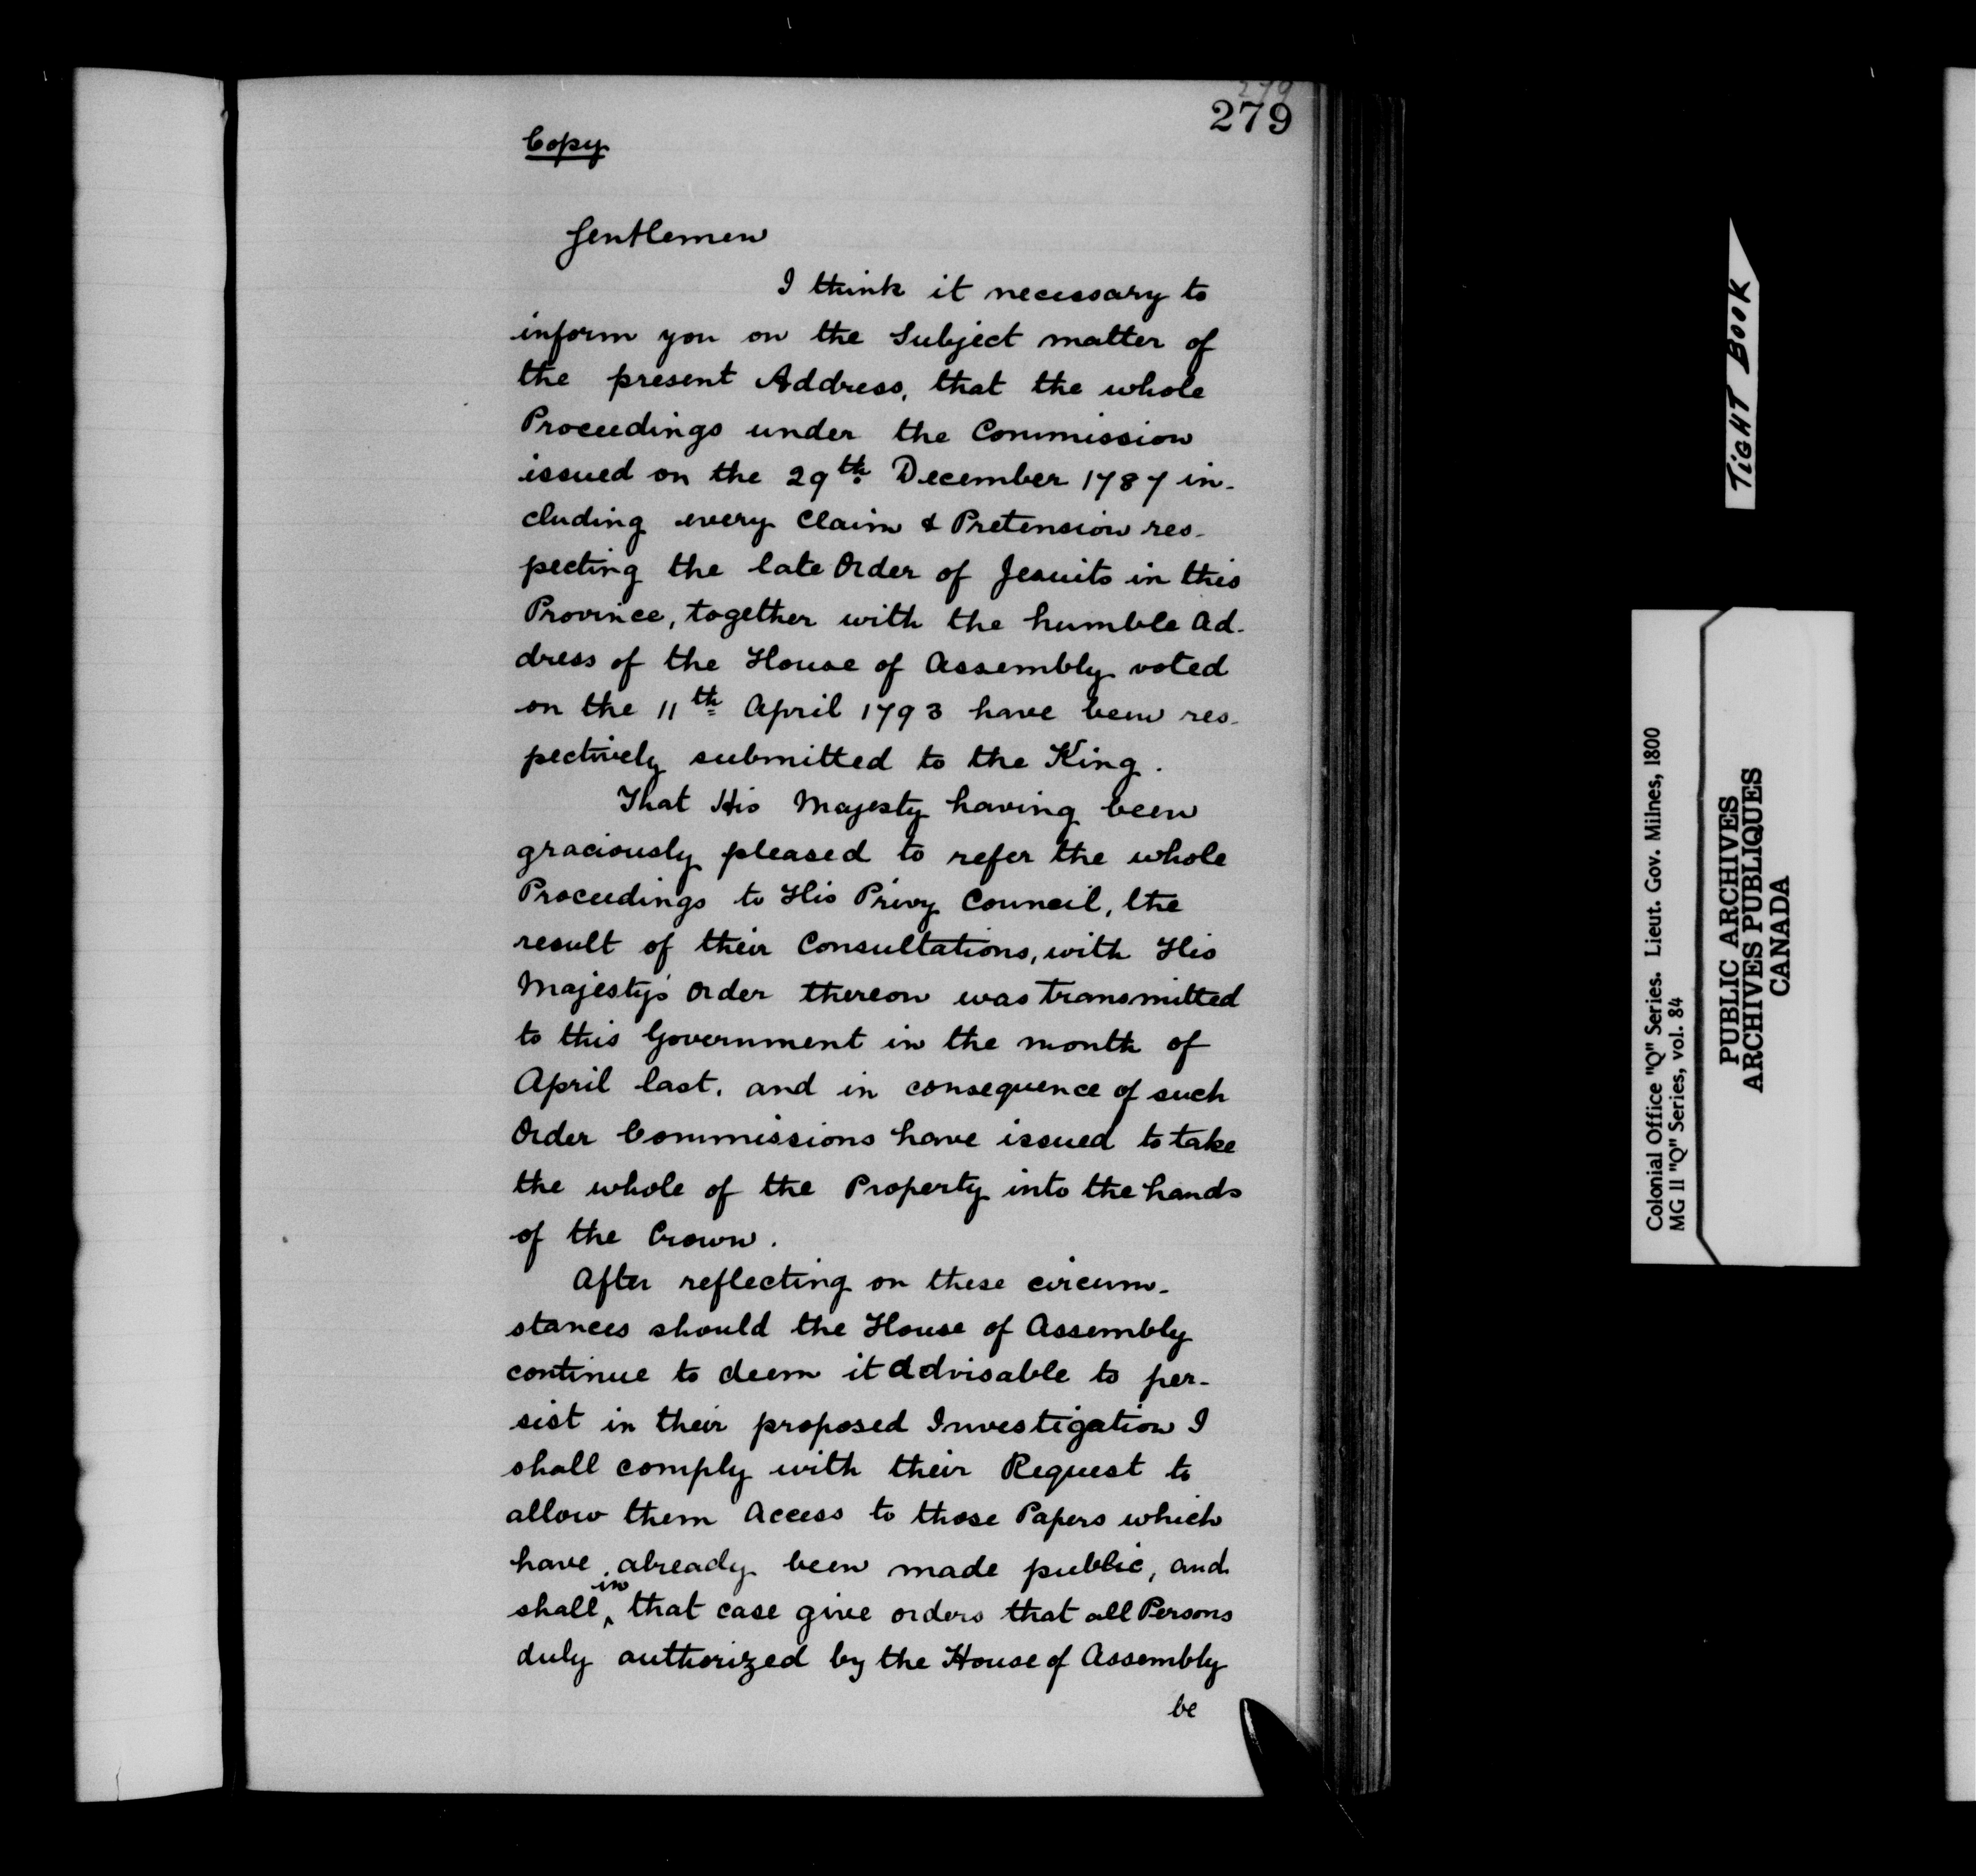 279
279
Copy
Gentlemen
I think it necessary to
inform you on the Subject matter of
the present Address, that the whole
Proceedings under the Commission
issued on the 29th December 1787 in-
cluding every Claim & Pretension res-
pecting the late Order of Jesuits in this
Province, together with the humble Ad-
dress of the House of Assembly voted
on the 11th April 1793 have been res-
pectively submitted to the King.
That His Majesty having been
graciously pleased to refer the whole
Proceedings to His Privy Council, the
result of their Consultations, with His
Majesty's Order thereon was transmitted
to this Government in the month of
April last. and in consequence of such
Order Commissions have issued to take
the whole of the Property into the hands
of the Crown.
After reflecting on these circum-
stances should the House of Assembly
continue to deem it advisable to per-
sist in their proposed Investigation I
shall comply with their Request to
allow them Access to those Papers which
have already been made public, and
shall in that case give orders that all Persons
duly authorized by the House of Assembly
be
TIGHT BOOK
Colonial Office "Q" Series. Lieut. Gov. Milnes, 1800
MG 11 "Q" Series, vol. 84
PUBLIC ARCHIVES
ARCHIVES PUBLIQUES
CANADA